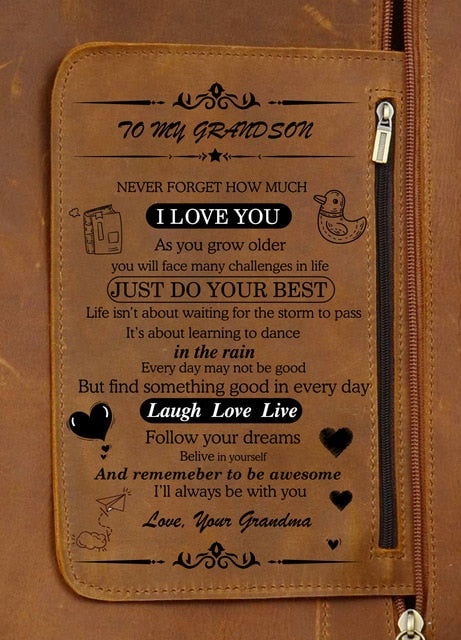 TO MY GRANDSON
NEVER FORGET HOW MUCH
I LOVE YOU
As you grow older
you will face many challenges in life
JUST DO YOUR BEST
Life isn't about waiting for the storm to pass
It's about learning to dance
in the rain
Every day may not be good
But find something good in every day
Laugh Love Live
Follow your dreams
Belive in yourself
And rememeber to be awesome
I'll always be with you
Love, Your Grandma